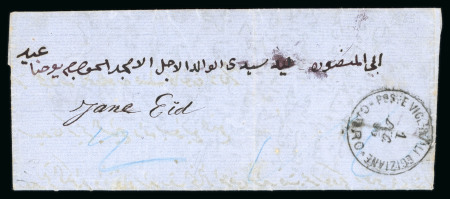 عيد
الى المنصوره سيدى الوالد الاجل الامجد الخواجه يوحنا
Jane Eid
POSTE VICE-REALI EGIZIANE
CAIRO